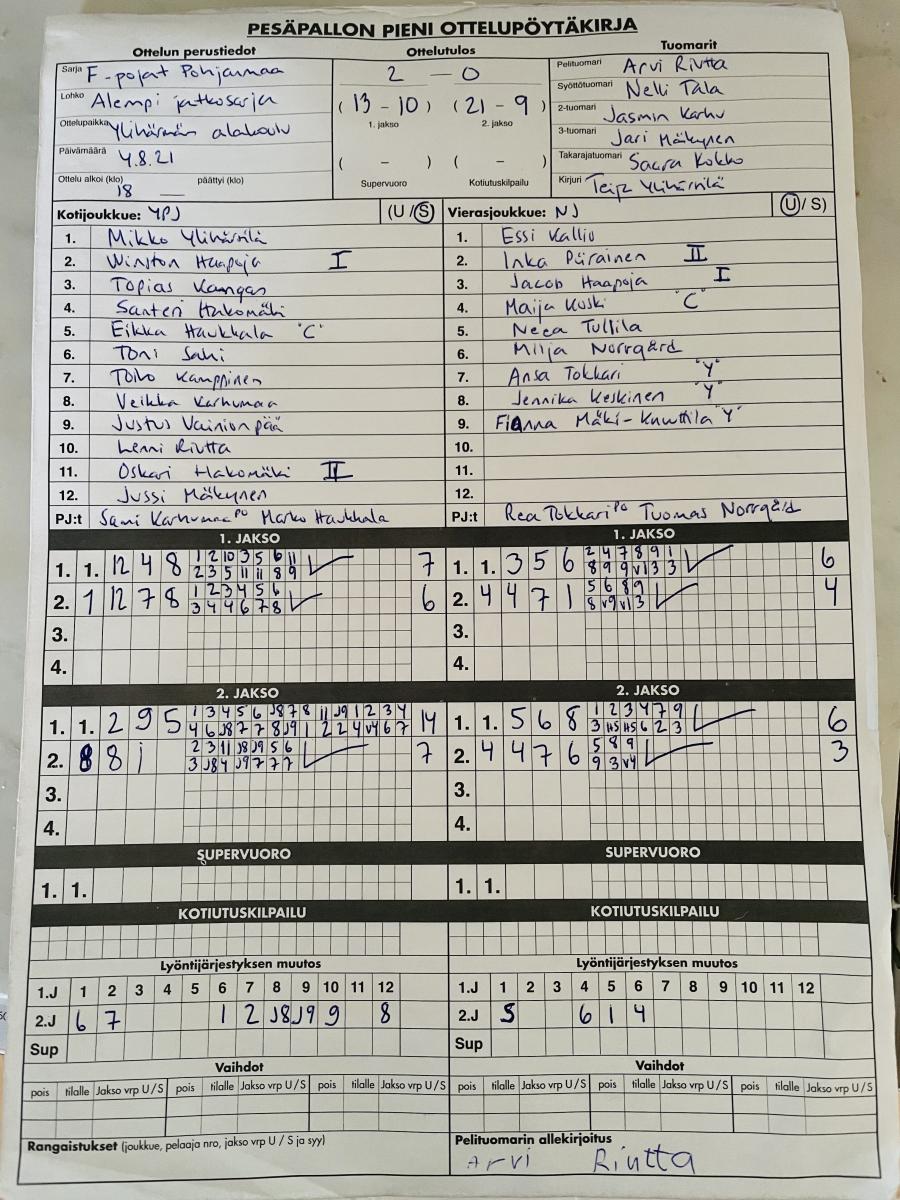 PESÄPALLON PIENI OTTELUPÖYTÄKIRJA
Ottelun perustiedot
Sarja F-pojat Pohjanmaa
Lohko Alempi jatkosarja
Ottelupaikka Ylihärmän alakoulu
Päivämäärä 4.8.21
Ottelu alkoi (klo) päättyi (klo)
18 —
Ottelutulos
2 — 0
(13 - 10) (21 - 9)
1. jakso 2. jakso
( - ) ( - )
Supervuoro Kotiutuskilpailu
Tuomarit
Pelituomari Arvi Riutta
Syöttötuomari Nelli Tala
2-tuomari Jasmin Karhu
3-tuomari Jari Mäkynen
Takarajatuomari Saara Kokko
Kirjuri Teija Ylihärsilä
Kotijoukkue: YPJ (U / S)
1. Mikko Ylihärsilä
2. Winston Haapoja I
3. Topias Kangas
4. Santeri Hakomäki
5. Eikka Haukkala "C"
6. Toni Sahi
7. Toivo Kamppinen
8. Veikka Karhumaa
9. Justus Vainionpää
10. Lenni Riutta
11. Oskari Hakomäki II
12. Jussi Mäkynen
PJ:t Sami Karhumaa PO Marko Haukkala
Vierasjoukkue: NJ (U / S)
1. Essi Kallio
2. Inka Piirainen II
3. Jacob Haapoja I
4. Maija Koski "C"
5. Neea Tullila
6. Milja Norrgård
7. Ansa Tokkari "Y"
8. Jennika Keskinen "Y"
9. Fianna Mäki-Knuuttila "Y"
10.
11.
12.
PJ:t Rea Tokkari PO Tuomas Norrgård
1. JAKSO
1. 1. 12 4 8 1 2 10 3 5 6 11 7
2 3 5 11 11 8 9
2. 1 12 7 8 1 2 3 4 5 6 6
3 4 4 6 7 8
3.
4.
1. JAKSO
1. 1. 3 5 6 2 4 7 8 9 1 6
8 9 9 v1 3 3
2. 4 4 7 1 5 6 8 9 4
8 v9 v1 3
3.
4.
2. JAKSO
1. 1. 2 9 5 1 3 4 5 6 J8 7 8 11 J9 1 2 3 4 14
4 6 J8 7 7 8 J9 1 2 2 4 v4 6 7
2. 8 8 1 2 3 11 J8 J9 5 6 7
3 J8 4 J9 7 7 7
3.
4.
2. JAKSO
1. 1. 5 6 8 1 2 3 4 7 9 6
3 H5 H5 6 2 3
2. 4 4 7 6 5 8 9 3
9 3 v4
3.
4.
SUPERVUORO
1. 1.
SUPERVUORO
1. 1.
KOTIUTUSKILPAILU
KOTIUTUSKILPAILU
Lyöntijärjestyksen muutos
1.J 1 2 3 4 5 6 7 8 9 10 11 12
2.J 6 7 1 2 J8 J9 9 8
Sup
Lyöntijärjestyksen muutos
1.J 1 2 3 4 5 6 7 8 9 10 11 12
2.J 5 6 1 4
Sup
Vaihdot
pois tilalle Jakso vrp U / S pois tilalle Jakso vrp U / S pois tilalle Jakso vrp U / S
Vaihdot
pois tilalle Jakso vrp U / S pois tilalle Jakso vrp U / S pois tilalle Jakso vrp U / S
Rangaistukset (joukkue, pelaaja nro, jakso vrp U / S ja syy)
Pelituomarin allekirjoitus
Arvi Riutta